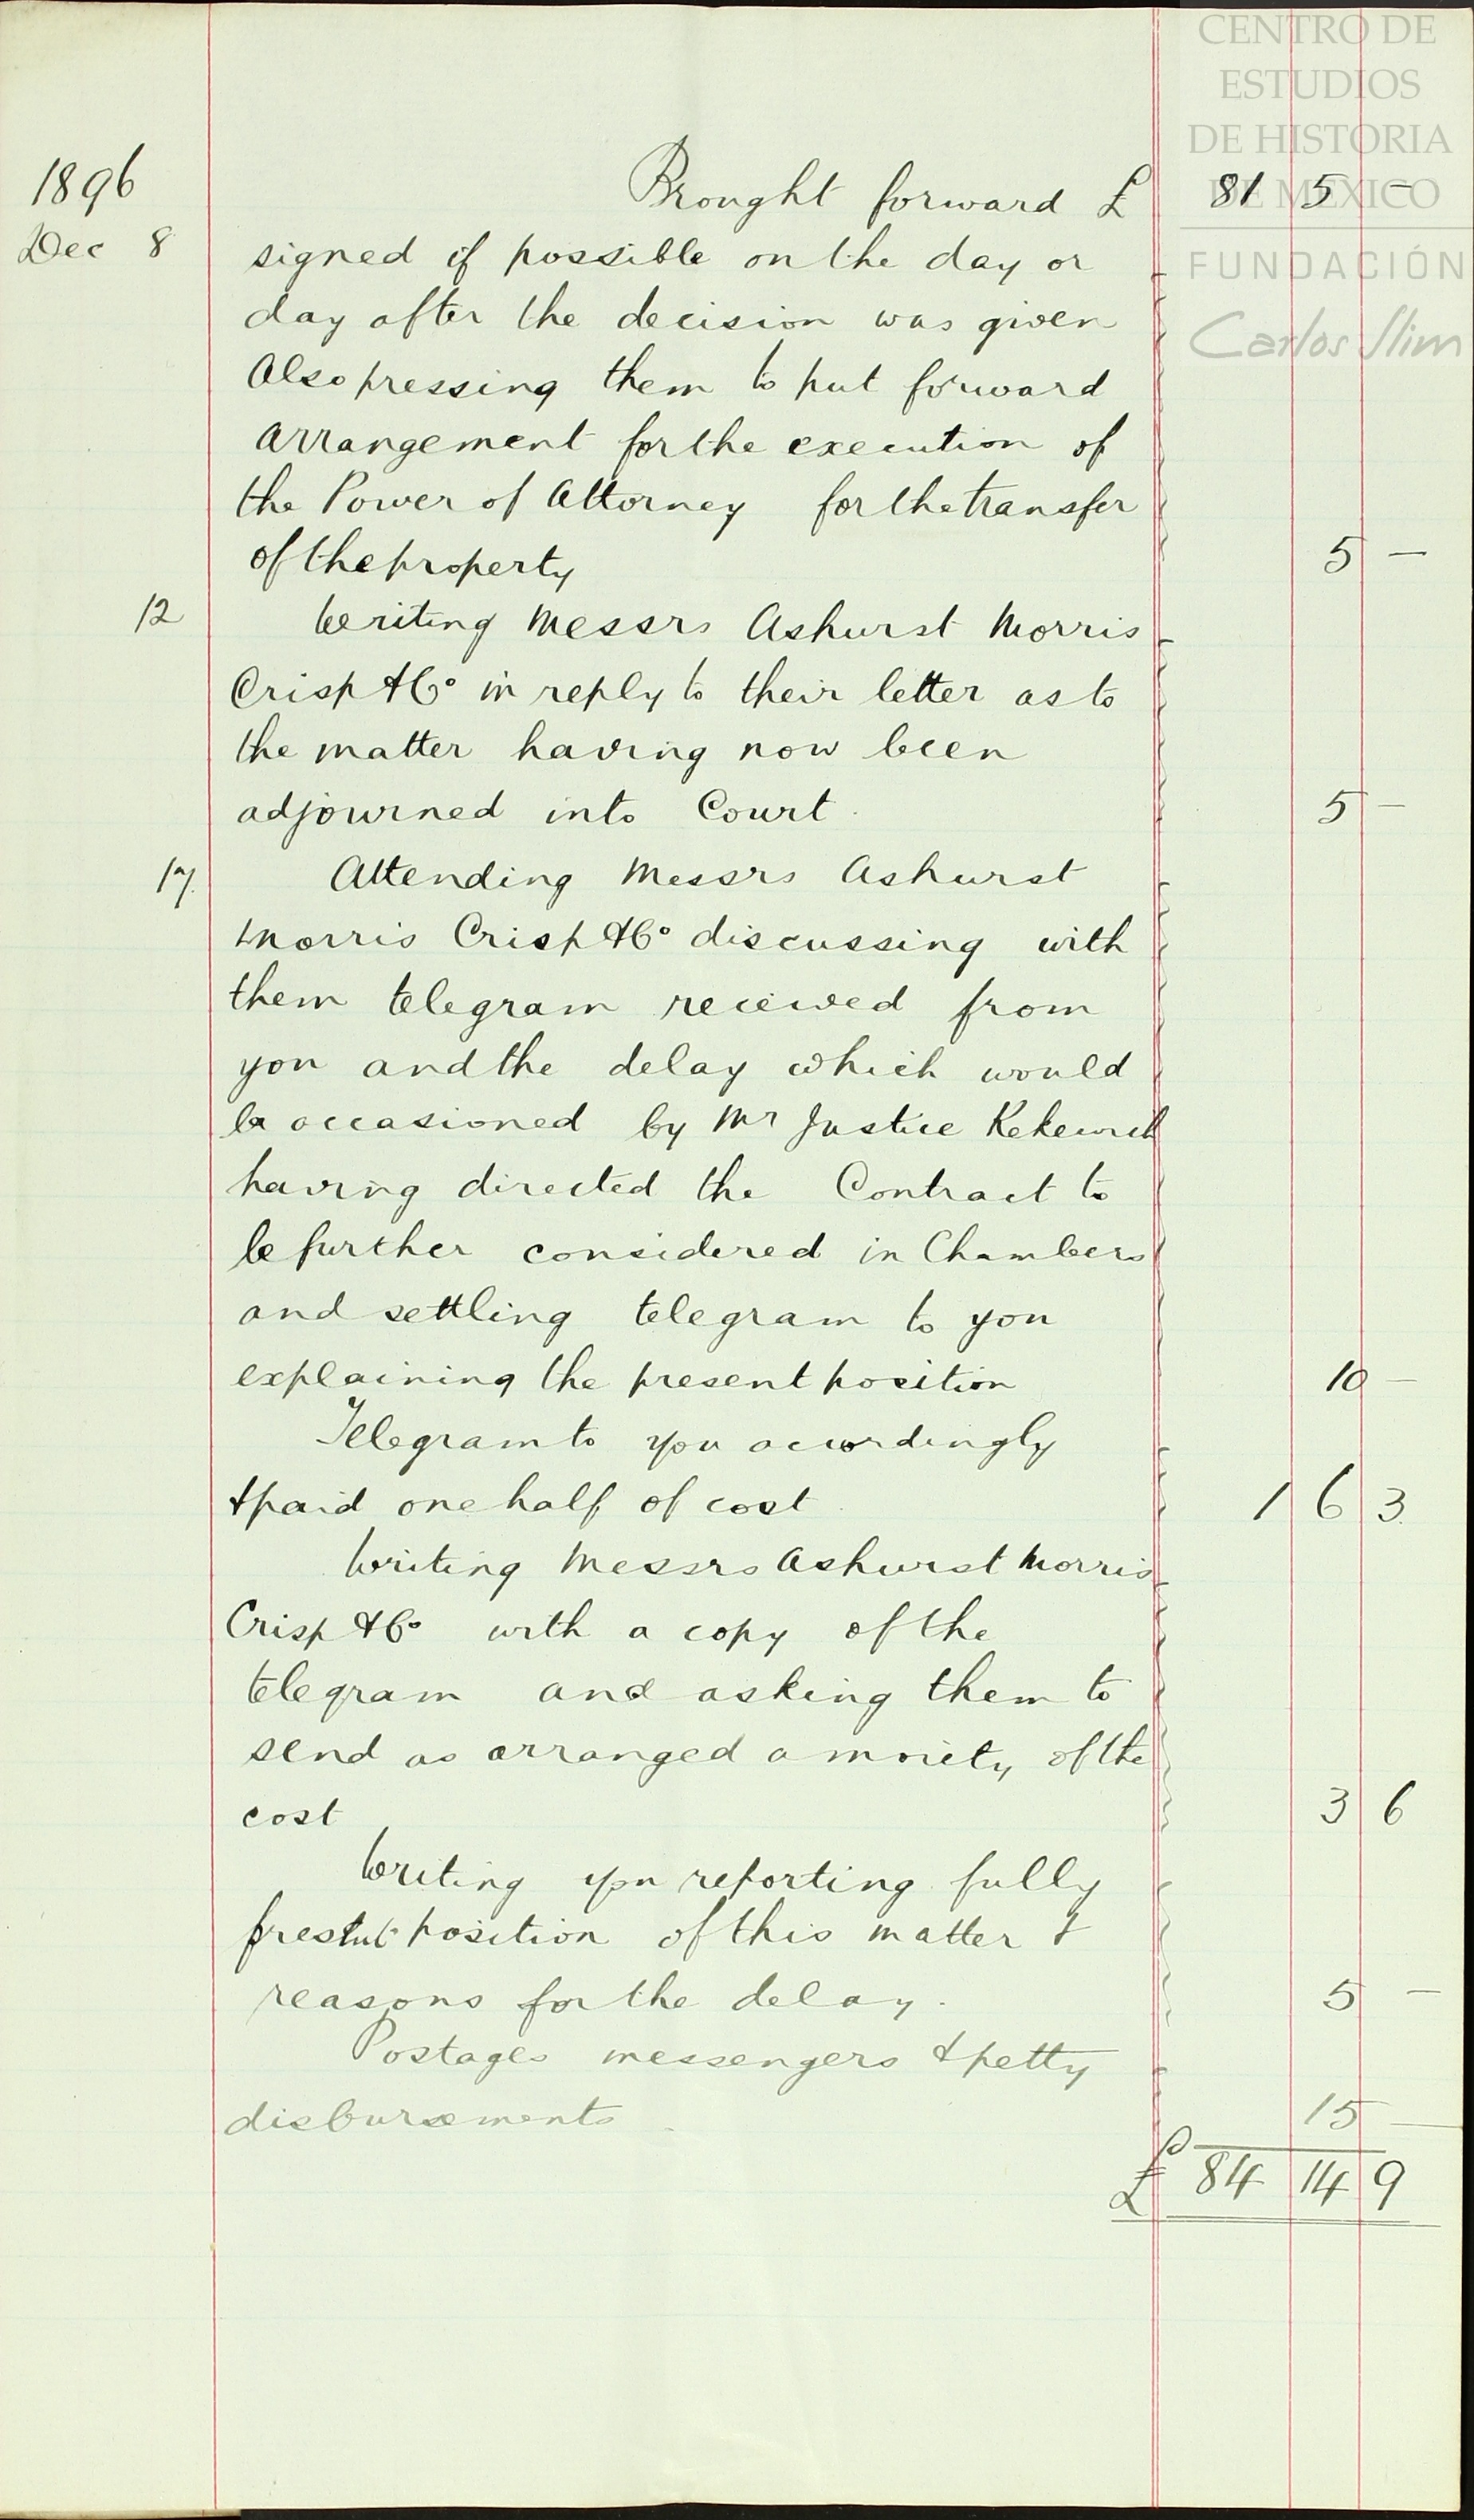 CENTRO DE
ESTUDIOS
DE HISTORIA
DE MEXICO
FUNDACIÓN
Carlos Slim
1896 Brought forward £ 81 5 -
Dec 8 signed if possible on the day or
day after the decision was given
Also pressing them to put forward
arrangement for the execution of
the Power of Attorney for the transfer
of the property 5 -
12 Writing Messrs Ashurst Morris
Crisp & Co in reply to their letter as to
the matter having now been
adjourned into Court. 5 -
17. Attending Messrs Ashurst
Morris Crisp & Co discussing with
them telegram received from
you and the delay which would
be occasioned by Mr Justice Kekewich
having directed the Contract to
be further considered in Chambers
and settling telegram to you
explaining the present position 10 -
Telegram to you accordingly
& paid one half of cost. 1 6 3.
Writing Messrs Ashurst Morris
Crisp & Co with a copy of the
telegram and asking them to
send as arranged a moiety of the
cost 3 6
Writing you reporting fully
present position of this matter &
reasons for the delay. 5 -
Postages messengers & petty
disbursements 15 -
£ 84 14 9